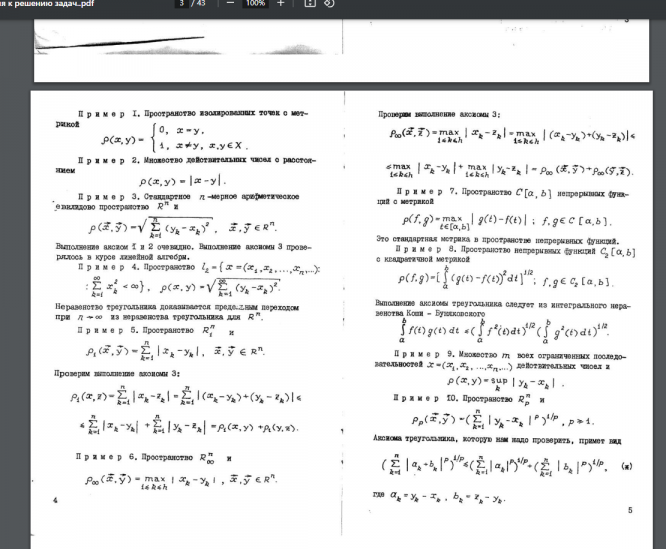 ия к решению задач..pdf
3 / 43
— 100% +
3
П р и м е р 1. Пространство изолированных точек с мет-
рикой
ρ(x,y) = { 0, x=y, 1, x≠y, x,y∈X.
П р и м е р 2. Множество действительных чисел с расстоя-
нием
ρ(x,y) = |x-y|.
П р и м е р 3. Стандартное n-мерное арифметическое
евклидово пространство Rⁿ и
ρ(x⃗,y⃗)=√(∑_{k=1}^{n} (y_k-x_k)²), x⃗,y⃗∈Rⁿ.
Выполнение аксиом 1 и 2 очевидно. Выполнение аксиомы 3 прове-
рялось в курсе линейной алгебры.
П р и м е р 4. Пространство l₂={x=(x₁,x₂,...,x_n,...):
:∑_{k=1}^{∞} x_k²<∞}, ρ(x,y)=√(∑_{k=1}^{∞} (x_k-y_k)²).
Неравенство треугольника доказывается предельным переходом
при n→∞ из неравенства треугольника для Rⁿ.
П р и м е р 5. Пространство R₁ⁿ и
ρ₁(x⃗,y⃗)=∑_{k=1}^{n} |x_k-y_k|, x⃗,y⃗∈Rⁿ.
Проверим выполнение аксиомы 3:
ρ₁(x,z)=∑_{k=1}^{n} |x_k-z_k|=∑_{k=1}^{n} |(x_k-y_k)+(y_k-z_k)|≤
≤∑_{k=1}^{n} |x_k-y_k|+∑_{k=1}^{n} |y_k-z_k|=ρ₁(x,y)+ρ₁(y,z).
П р и м е р 6. Пространство R_∞ⁿ и
ρ_∞(x⃗,y⃗)=max_{1≤k≤n} |x_k-y_k|, x⃗,y⃗∈Rⁿ.
4
Проверим выполнение аксиомы 3:
ρ_∞(x⃗,z⃗)=max_{1≤k≤n} |x_k-z_k|=max_{1≤k≤n} |(x_k-y_k)+(y_k-z_k)|≤
≤max_{1≤k≤n} |x_k-y_k|+max_{1≤k≤n} |y_k-z_k|=ρ_∞(x⃗,y⃗)+ρ_∞(y⃗,z⃗).
П р и м е р 7. Пространство C[a,b] непрерывных функ-
ций с метрикой
ρ(f,g)=max_{t∈[a,b]} |g(t)-f(t)|; f,g∈C[a,b].
Это стандартная метрика в пространстве непрерывных функций.
П р и м е р 8. Пространство непрерывных функций C₂[a,b]
с квадратичной метрикой
ρ(f,g)=[∫_a^b (g(t)-f(t))²dt]^{1/2}, f,g∈C₂[a,b].
Выполнение аксиомы треугольника следует из интегрального нера-
венства Коши - Буняковского
∫_a^b f(t)g(t)dt≤(∫_a^b f²(t)dt)^{1/2}(∫_a^b g²(t)dt)^{1/2}.
П р и м е р 9. Множество m всех ограниченных последо-
вательностей x=(x₁,x₂,...,x_n,...) действительных чисел и
ρ(x,y)=sup_k |y_k-x_k|.
П р и м е р 10. Пространство R_pⁿ и
ρ_p(x⃗,y⃗)=(∑_{k=1}^{n} |y_k-x_k|^p)^{1/p}, p≥1.
Аксиома треугольника, которую нам надо проверить, примет вид
(∑_{k=1}^{n} |a_k+b_k|^p)^{1/p}≤(∑_{k=1}^{n} |a_k|^p)^{1/p}+(∑_{k=1}^{n} |b_k|^p)^{1/p}, (*)
где a_k=y_k-x_k, b_k=z_k-y_k.
5